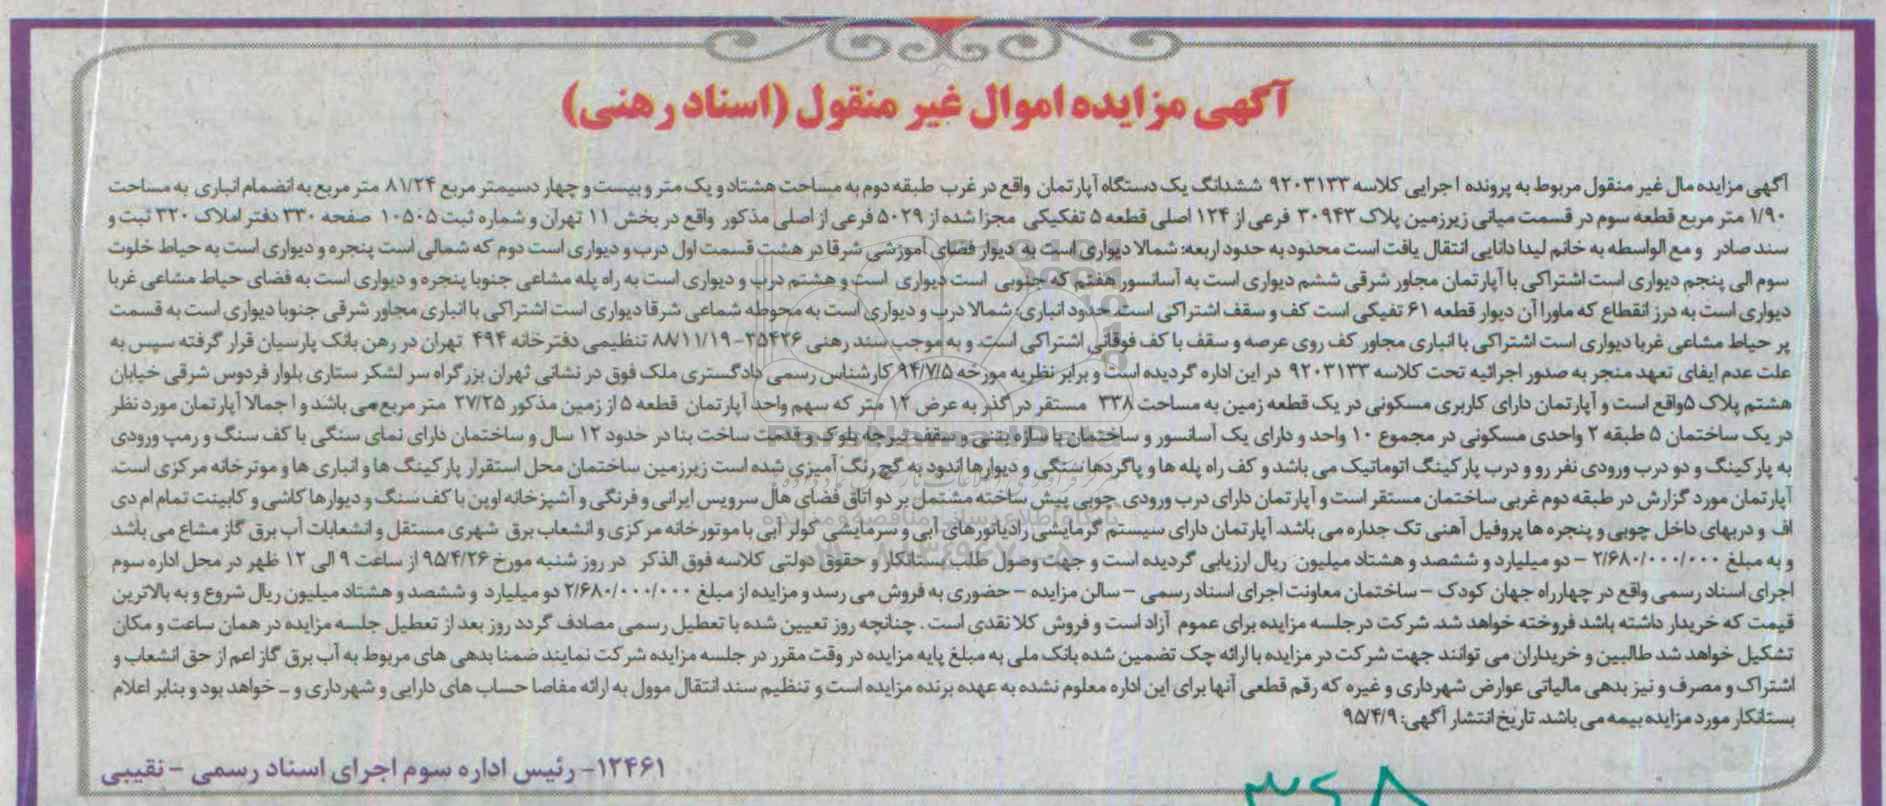 آگهی مزایده اموال غیر منقول (اسناد رهنی)
آگهی مزایده مال غیر منقول مربوط به پرونده اجرایی کلاسه ۹۲۰۳۱۳۳ ششدانگ یک دستگاه آپارتمان واقع در غرب طبقه دوم به مساحت هشتاد و یک متر و بیست و چهار دسیمتر مربع ۸۱/۲۴ متر مربع به انضمام انباری به مساحت
۱/۹۰ متر مربع قطعه سوم در قسمت میانی زیرزمین پلاک ۳۰۹۴۳ فرعی از ۱۲۴ اصلی قطعه ۵ تفکیکی مجزا شده از ۵۰۲۹ فرعی از اصلی مذکور واقع در بخش ۱۱ تهران و شماره ثبت ۱۰۵۰۵ صفحه ۳۳۰ دفتر املاک ۳۲۰ ثبت و
سند صادر و مع الواسطه به خانم لیدا دانایی انتقال یافت است محدود به حدود اربعه: شمالا دیواری است به دیوار فضای آموزشی شرقا در هشت قسمت اول درب و دیواری است دوم که شمالی است پنجره و دیواری است به حیاط خلوت
سوم الی پنجم دیواری است اشتراکی با آپارتمان مجاور شرقی ششم دیواری است به آسانسور هفتم که جنوبی است دیواری است و هشتم درب و دیواری است به راه پله مشاعی جنوبا پنجره و دیواری است به فضای حیاط مشاعی غربا
دیواری است به درز انقطاع که ماورا آن دیوار قطعه ۶۱ تفیکی است کف و سقف اشتراکی است. حدود انباری: شمالا درب و دیواری است به محوطه شماعی شرقا دیواری است اشتراکی با انباری مجاور شرقی جنوبا دیواری است به قسمت
پر حیاط مشاعی غربا دیواری است اشتراکی با انباری مجاور کف روی عرصه و سقف با کف فوقانی اشتراکی است. و به موجب سند رهنی ۲۵۴۲۶-۸۸/۱۱/۱۹ تنظیمی دفترخانه ۴۹۴ تهران در رهن بانک پارسیان قرار گرفته سپس به
علت عدم ایفای تعهد منجر به صدور اجرائیه تحت کلاسه ۹۲۰۳۱۳۳ در این اداره گردیده است و برابر نظریه مورخه ۹۴/۷/۵ کارشناس رسمی دادگستری ملک فوق در نشانی تهران بزرگراه سر لشکر ستاری بلوار فردوس شرقی خیابان
هشتم پلاک ۵ واقع است و آپارتمان دارای کاربری مسکونی در یک قطعه زمین به مساحت ۳۳۸ مستقر در گذر به عرض ۱۲ متر که سهم واحد آپارتمان قطعه ۵ از زمین مذکور ۲۷/۲۵ متر مربع می باشد و اجمالا آپارتمان مورد نظر
در یک ساختمان ۵ طبقه ۲ واحدی مسکونی در مجموع ۱۰ واحد و دارای یک آسانسور و ساختمان با سازه بتنی و سقف تیرچه بلوک و قدمت ساخت بنا در حدود ۱۲ سال و ساختمان دارای نمای سنگی با کف سنگ و رمپ ورودی
به پارکینگ و دو درب ورودی نفر رو و درب پارکینگ اتوماتیک می باشد و کف راه پله ها و پاگردها سنگی و دیوارها اندود به گچ رنگ آمیزی شده است زیرزمین ساختمان محل استقرار پارکینگ ها و انباری ها و موتورخانه مرکزی است.
آپارتمان مورد گزارش در طبقه دوم غربی ساختمان مستقر است و آپارتمان دارای درب ورودی چوبی پیش ساخته مشتمل بر دو اتاق فضای هال سرویس ایرانی و فرنگی و آشپزخانه اوپن با کف سنگ و دیوارها کاشی و کابینت تمام ام دی
اف و دربهای داخل چوبی و پنجره ها پروفیل آهنی تک جداره می باشد. آپارتمان دارای سیستم گرمایشی رادیاتورهای آبی و سرمایشی کولر آبی با موتورخانه مرکزی و انشعاب برق شهری مستقل و انشعابات آب برق گاز مشاع می باشد
و به مبلغ ۲/۶۸۰/۰۰۰/۰۰۰ – دو میلیارد و ششصد و هشتاد میلیون ریال ارزیابی گردیده است و جهت وصول طلب بستانکار و حقوق دولتی کلاسه فوق الذکر در روز شنبه مورخ ۹۵/۴/۲۶ از ساعت ۹ الی ۱۲ ظهر در محل اداره سوم
اجرای اسناد رسمی واقع در چهارراه جهان کودک – ساختمان معاونت اجرای اسناد رسمی – سالن مزایده – حضوری به فروش می رسد و مزایده از مبلغ ۲/۶۸۰/۰۰۰/۰۰۰ دو میلیارد و ششصد و هشتاد میلیون ریال شروع و به بالاترین
قیمت که خریدار داشته باشد فروخته خواهد شد. شرکت در جلسه مزایده برای عموم آزاد است و فروش کلا نقدی است . چنانچه روز تعیین شده با تعطیل رسمی مصادف گردد روز بعد از تعطیل جلسه مزایده در همان ساعت و مکان
تشکیل خواهد شد طالبین و خریداران می توانند جهت شرکت در مزایده با ارائه چک تضمین شده بانک ملی به مبلغ پایه مزایده در وقت مقرر در جلسه مزایده شرکت نمایند ضمنا بدهی های مربوط به آب برق گاز اعم از حق انشعاب و
اشتراک و مصرف و نیز بدهی مالیاتی عوارض شهرداری و غیره که رقم قطعی آنها برای این اداره معلوم نشده به عهده برنده مزایده است و تنظیم سند انتقال موول به ارائه مفاصا حساب های دارایی و شهرداری و ... خواهد بود و بنابر اعلام
بستانکار مورد مزایده بیمه می باشد. تاریخ انتشار آگهی: ۹۵/۴/۹
۱۲۴۶۱- رئیس اداره سوم اجرای اسناد رسمی – نقیبی